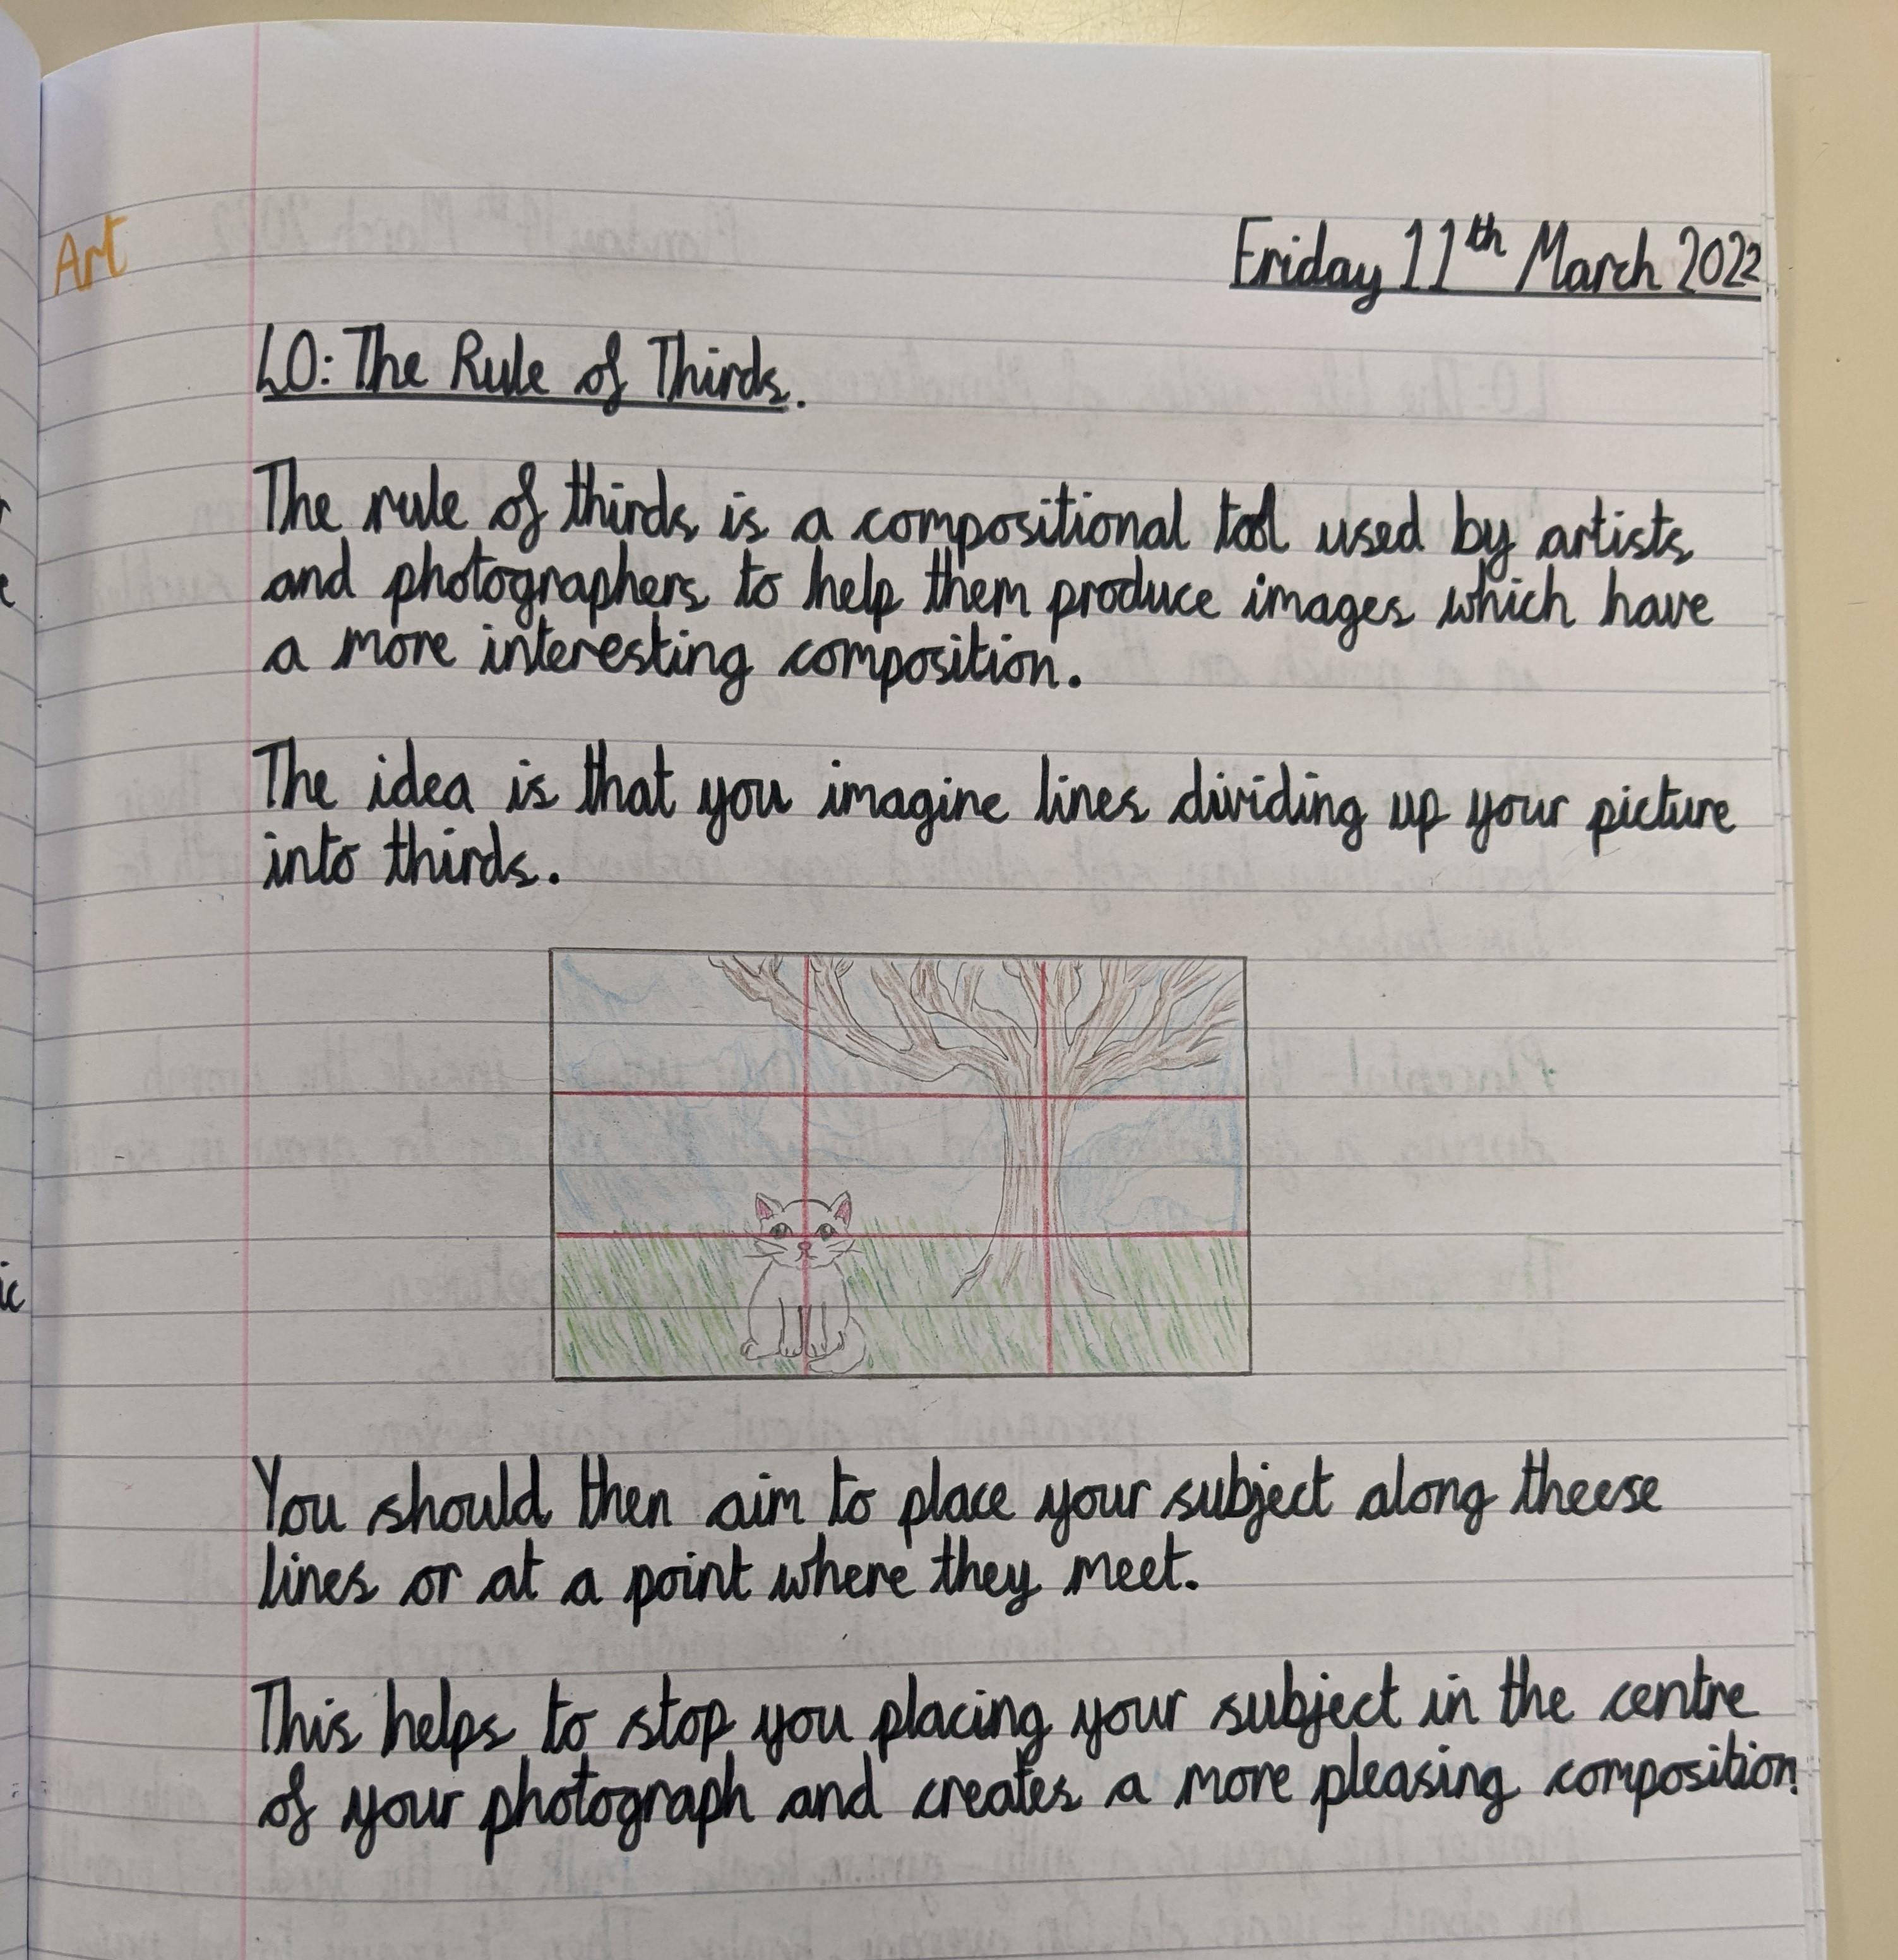 Art
Friday 11th March 2022
LO: The Rule of Thirds.
The rule of thirds is a compositional tool used by artists
and photographers to help them produce images which have
a more interesting composition.
The idea is that you imagine lines dividing up your picture
into thirds.
You should then aim to place your subject along theese
lines or at a point where they meet.
This helps to stop you placing your subject in the centre
of your photograph and creates a more pleasing composition.